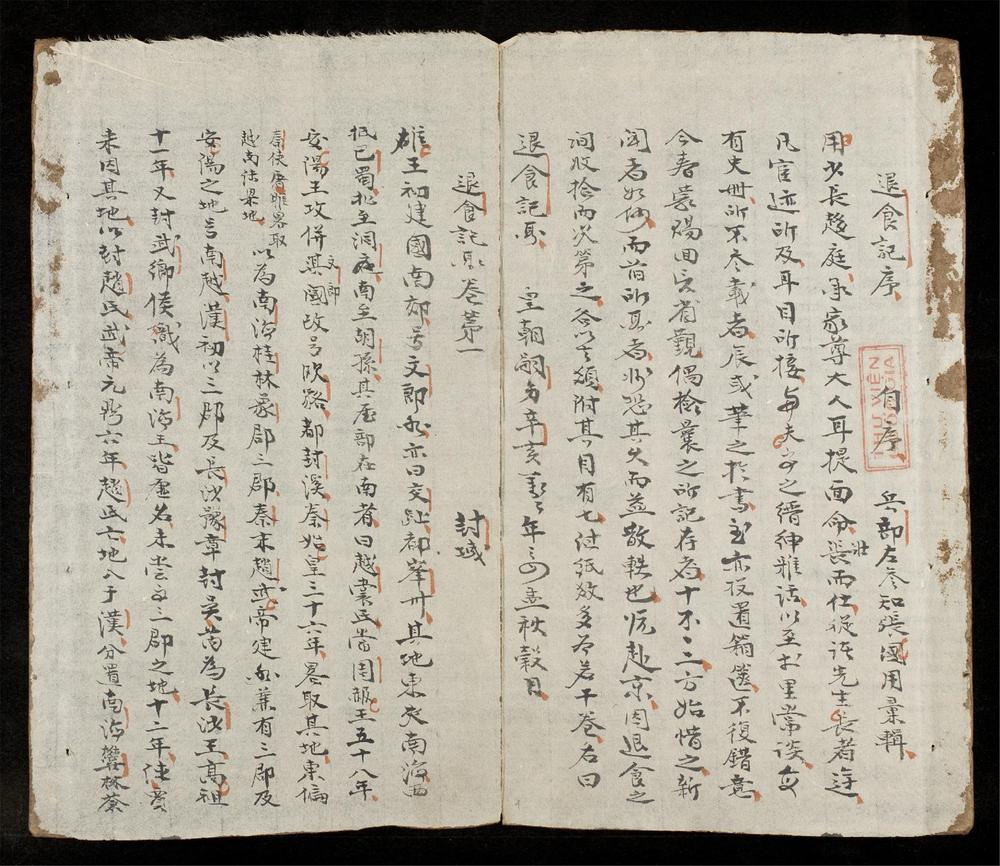 退食記序 自序 兵部左參知張國用彙輯
用少長趨庭承家尊大人耳提面命壯長而仕從諸先生長者遊
凡宦迹所及耳目所接與夫 之縉紳雅話以至村里常談
有史冊所不參載者辰或筆之於書 亦投置箱篋不復錯意
今春蒙賜回家省覲偶檢囊之所記存者十不二三方始惜之新
聞者如何而舊所 者 恐其久而益散軼也抗赴京因退食之
詞收拾而次第之各以之類附其目有七 紙數多 若干卷名曰
退食記聞 皇朝嗣 辛亥 年 孟秋穀日
退食記聞卷第一
封域
雄王初建國南郊号文郎 亦曰交趾都峯州其地東夾南海西
抵巴蜀北至洞庭南至胡孫其屋部在南者曰越裳氏當周赧王五十八年
安陽王攻併其國文郎改号欧貉都封溪秦始皇三十六年畧取其地東偏
秦使屠睢畧取
越南陸梁地
以為南海桂林象郡三郡秦末趙武帝建 兼有三郡及
安陽之地号南越漢初以三郡及長沙豫章封吳芮為長沙王高祖
十一年又封武鄉侯織為南海王皆虛名未嘗 三郡之地十二年佗
来因其地以封趙氏武帝元鼎六年趙氏亡地入于漢分置南海鬱林蒼
THƯ VIỆN
QUỐC GIA